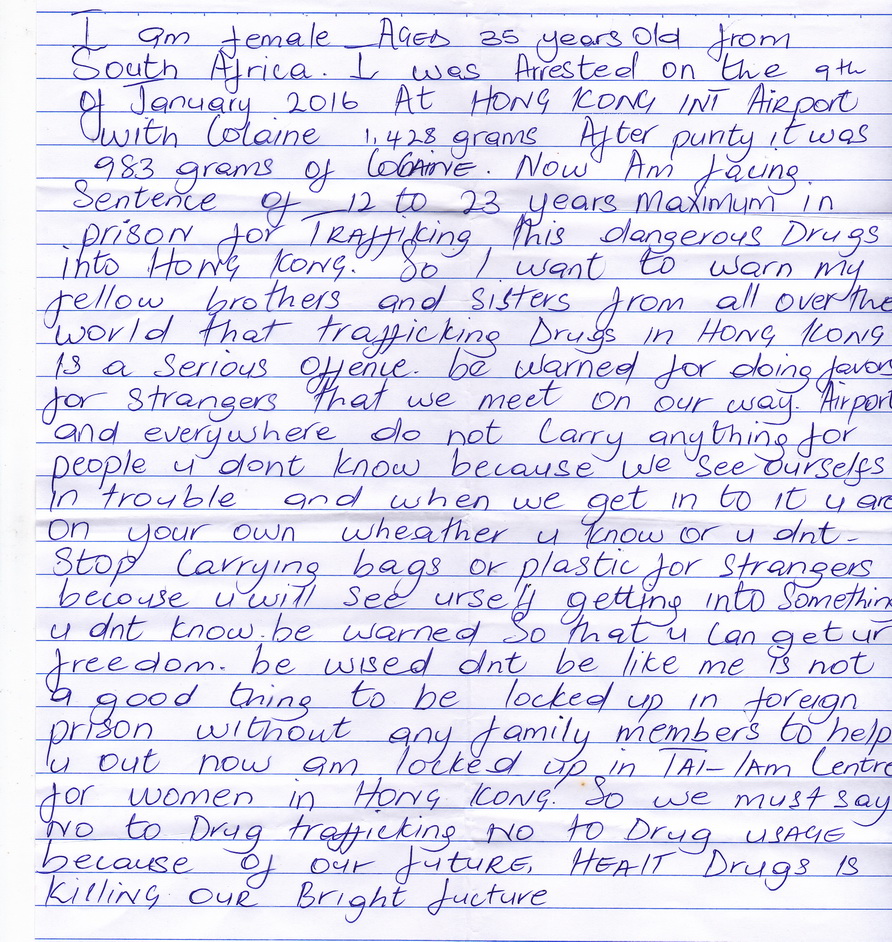 I am female AGED 35 years old from
South Africa. I was Arrested on the 9th
of January 2016 At HONG KONG INT Airport
with Cocaine 1,428 grams After purity it was
983 grams of COCAINE. Now Am facing
Sentence of 12 to 23 years Maximum in
prison for TRAfficking this dangerous Drugs
into HONG KONG. So I want to warn my
fellow brothers and sisters from all over the
world that trafficking Drugs in HONG KONG
Is a serious offence. be warned for doing favors
for strangers that we meet on our way. Airport
and everywhere do not carry anything for
people u dont know because we see ourselfs
in trouble and when we get in to it u are
on your own wheather u know or u dnt-
Stop Carrying bags or plastic for strangers
becouse u will see urself getting into Somethin
u dnt know. be warned So that u Can get ur
freedom. be wised dnt be like me is not
a good thing to be locked up in foreign
prison without any family members to help
u out now am locked up in TAI-lAm Centre
for women in HONG KONG. So we must say
NO to Drug trafficking NO to Drug USAGE
because of our futuRE, HEAlT Drugs IS
killiNG OUR Bright fucture